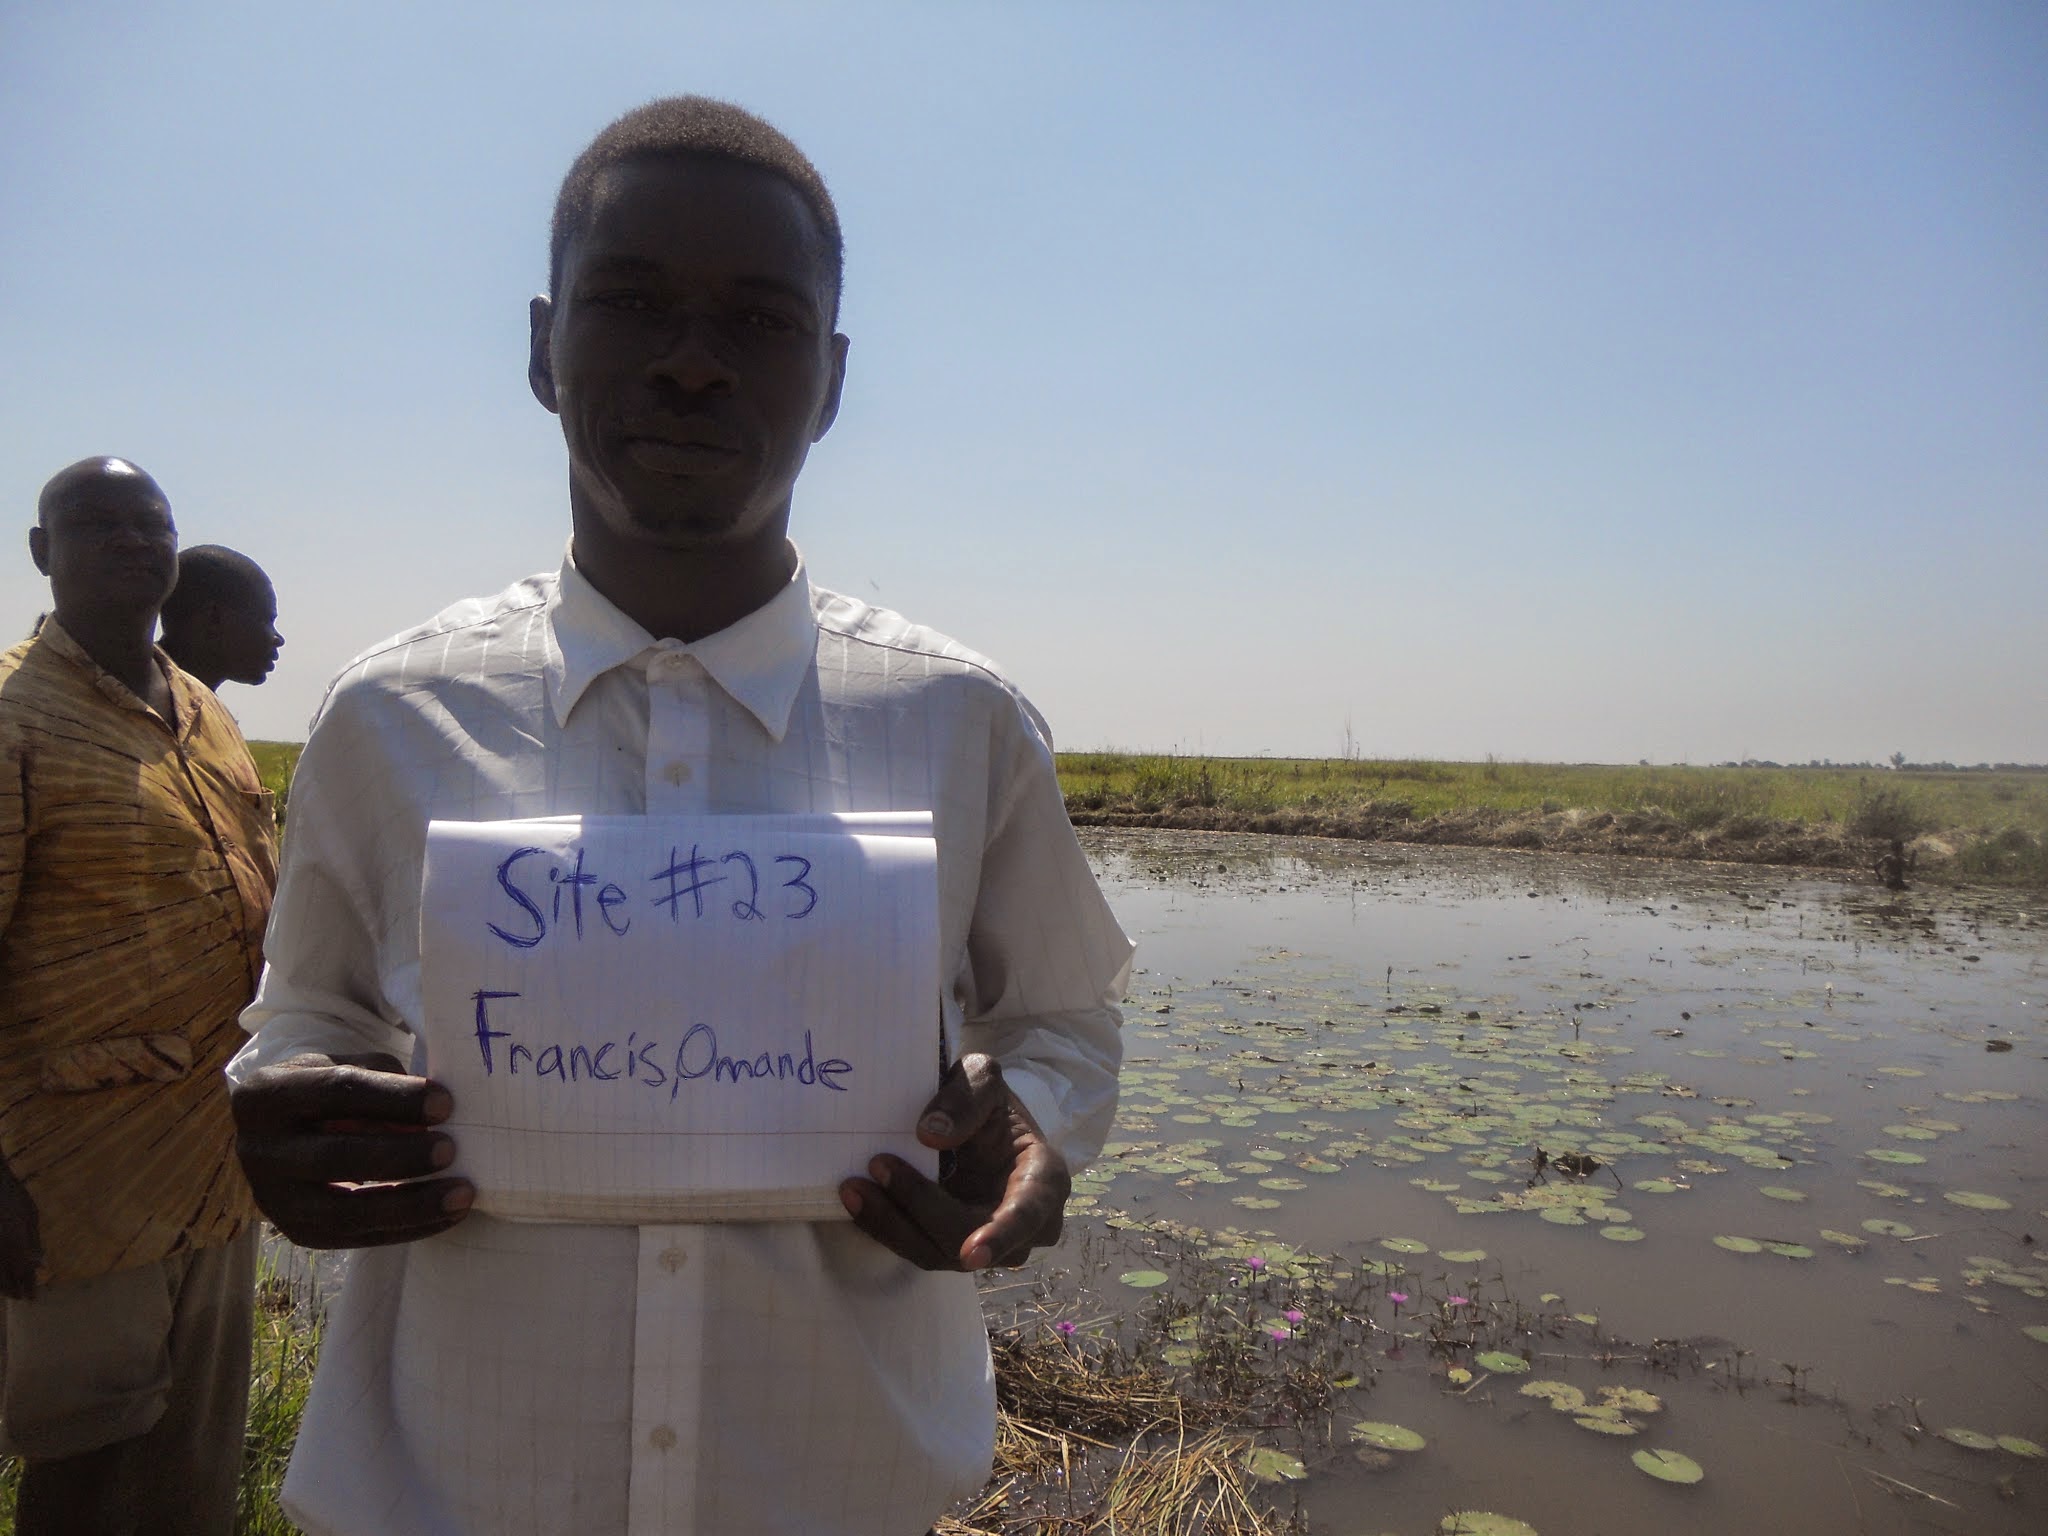 Site #23
Francis, Omande